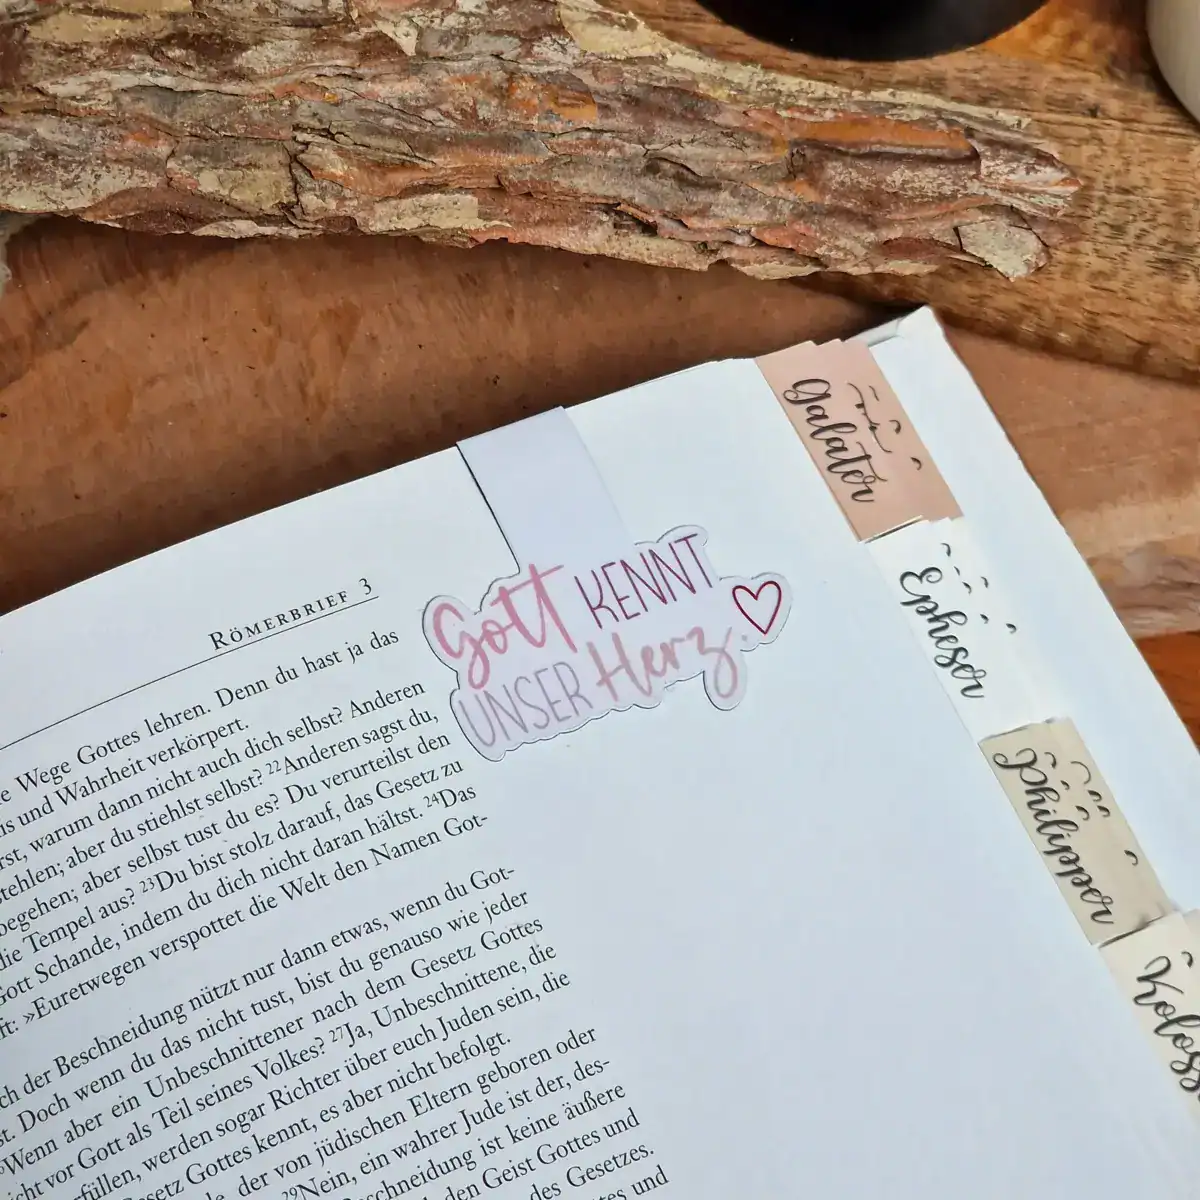 RÖMERBRIEF 3
Wege Gottes lehren. Denn du hast ja das
und Wahrheit verkörpert.
warum dann nicht auch dich selbst? Anderen
aber du stiehlst selbst? ²²Anderen sagst du,
aber selbst tust du es? Du verurteilst den
die Tempel aus? ²³Du bist stolz darauf, das Gesetz zu
Schande, indem du dich nicht daran hältst. ²⁴Das
»Euretwegen verspottet die Welt den Namen Got-
der Beschneidung nützt nur dann etwas, wenn du Got-
Doch wenn du das nicht tust, bist du genauso wie jeder
Wenn aber ein Unbeschnittener nach dem Gesetz Gottes
vor Gott als Teil seines Volkes? ²⁷Ja, Unbeschnittene, die
werden sogar Richter über euch Juden sein, die
Gottes kennt, es aber nicht befolgt.
der von jüdischen Eltern geboren oder
²⁹Nein, ein wahrer Jude ist der, des-
ist keine äußere
den Geist Gottes und
des Gesetzes.
und
Gott KENNT
UNSER Herz.
Galater
Epheser
Philipper